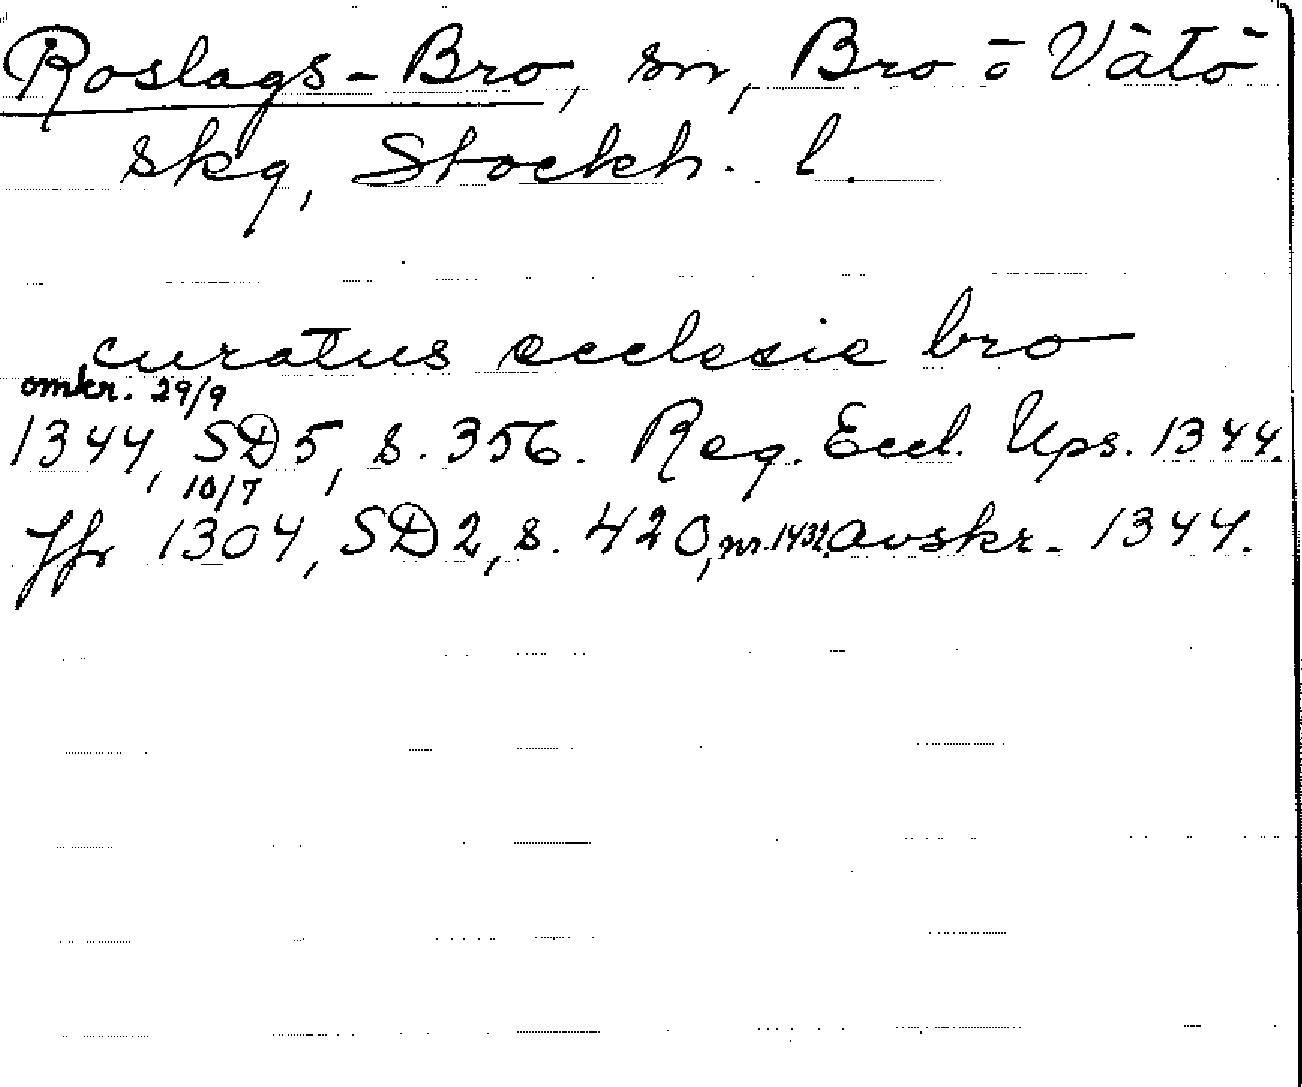 Roslags-Bro, sn, Bro o Vätö
skg, Stockh. l.
curatus ecclesie bro
omkr. 29/9
1344, SD 5, s. 356. Reg. Eccl. Ups. 1344.
10/7
Jfr 1304, SD 2, s. 420, nr. 1432. avskr. 1344.